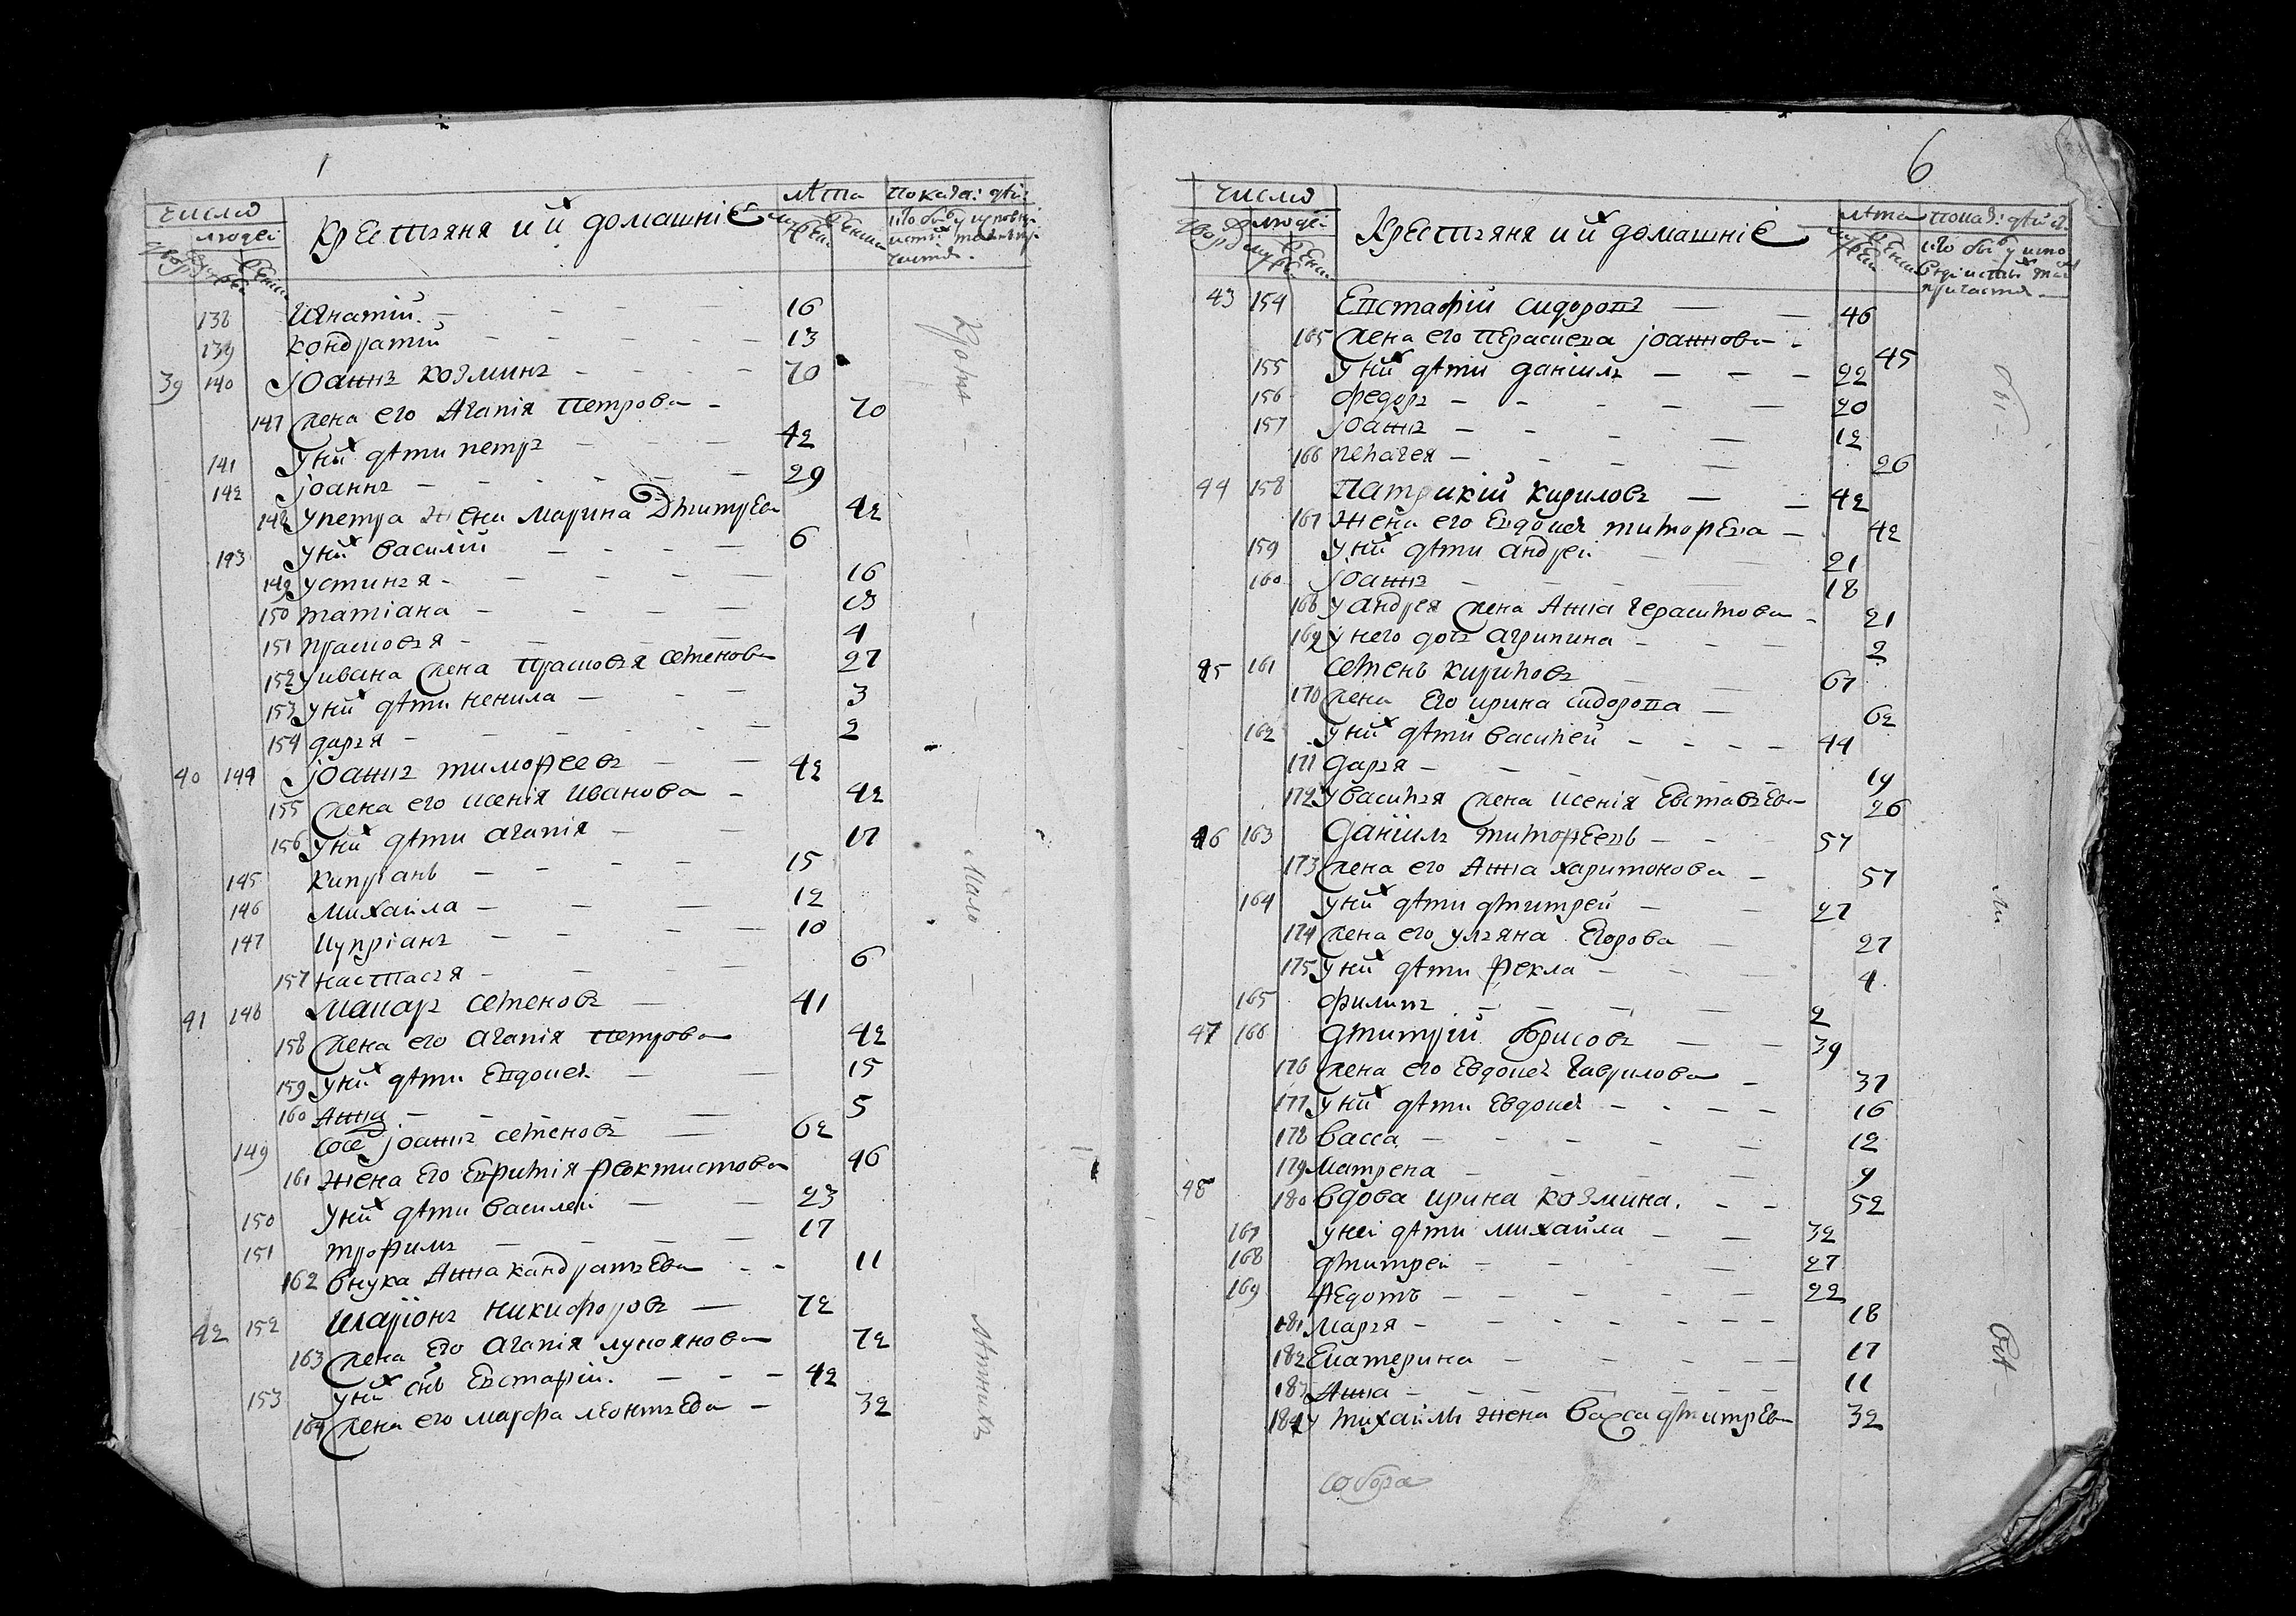 1
число
людеі
Крестьяня и их домашніе
лѣта
138 Игнатій 16
139 кондратій 13
39 140 јоаннъ козминъ 70
147 жена его Агапія Петрова 70
у них дѣти петръ 42
141
142 јоаннъ 29
148 у петра жена марина Дмитрева 42
143 у них василій 6
149 устинья 16
150 татіана 13
151 прасковья 4
152 у ивана жена прасковья семенова 27
153 у них дѣти ненила 3
154 дарья 2
40 144 јоаннъ тимофеевъ 42
155 жена его ксенія Иванова 42
156 у них дѣти агапія 17
145 кипріанъ 15
146 михаила 12
147 купріанъ 10
157 настасья 6
41 148 Макаръ семеновъ 41
158 жена его агапія петрова 42
159 у них дѣти Евдокея 15
160 Анна 5
149 јоаннъ семеновъ 62
161 жена его Евфимія феоктистова 46
150 у них дѣти василей 23
151 трофимъ 17
162 внука Анна кандратьева 11
42 152 иларіонъ никифоровъ 72
163 жена его агапія лукоянова 72
153 у них снъ Евстафій 42
164 жена его марфа леонтьева 32
Кромѣ
Мало
Лѣтнихъ
6
число
людеі
Крестьяня и их домашніе
лѣта
43 154 Евстафій сидоровъ 46
165 жена его Параскева јоаннова 45
155 у них дѣти даніилъ 22
156 федоръ 20
157 јоаннъ 12
166 пелагея 26
44 158 Патрикій кириловъ 42
167 жена его Евдокея тимофеева 42
159 у них дѣти андрей 21
160 јоаннъ 18
168 у андрея жена Анна герасимова 21
169 у него дочь агрипина 2
45 161 семенъ кириловъ 67
170 жена его ирина сидорова 62
162 у них дѣти василей 44
171 дарья 19
172 у василья жена ксенія Евставьева 26
46 163 даніилъ тимофеевъ 57
173 жена его Анна харитонова 57
164 у них дѣти дмитрей 27
174 жена его ульяна Егорова 27
175 у них дѣти фекла 4
165 филипъ 2
47 166 дмитрій борисовъ 39
176 жена его Евдокея гаврилова 37
177 у них дѣти Евдокея 16
178 васса 12
179 матрена 9
48 180 вдова ирина козмина 52
167 у неі дѣти михайла 32
168 дмитреи 27
169 федотъ 22
181 марья 18
182 Екатерина 17
183 Анна 11
184 у михайлы жена васса дмитрева 32
собора